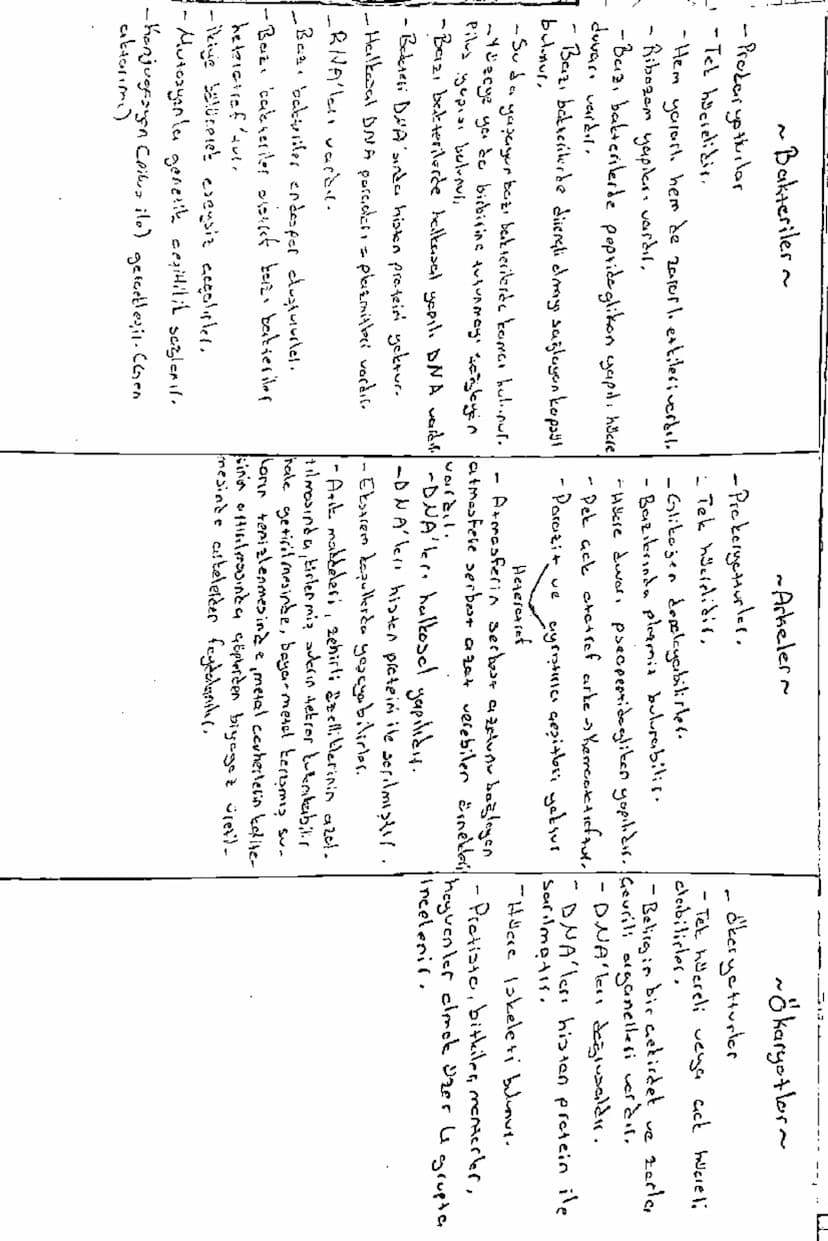 ~Bakteriler~
- Prokaryotturlar
- Tek hücrelidir.
- Hem yararlı hem de zararlı etkileri vardır.
- Ribozom yapıları vardır.
- Bazı bakterilerde peptidoglikan yapılı hücre
duvarı vardır.
- Bazı bakterilerde dirençli olmayı sağlayan kapsül
bulunur.
- Suda yaşayan bazı bakterilerde kamçı bulunur.
- Yüzeye ya da birbirine tutunmayı sağlayan
pilus yapısı bulunur.
- Bazı bakterilerde halkasal yapılı DNA vardır.
- Bakteri DNA'sında histon proteini yoktur.
- Halkasal DNA parçaları = plazmitleri vardır.
- RNA'ları vardır.
- Bazı bakteriler endospor oluştururlar.
- Bazı bakteriler ototrof bazı bakteriler
heterotrof'tur.
- İkiye bölünerek eşeysiz çoğalırlar.
- Mutasyonla genetik çeşitlilik sağlanır.
- Konjugasyon (pilus ile) gerçekleşir. (Gen
aktarımı)
~Arkeler~
- Prokaryotturlar.
- Tek hücrelidir.
- Glikojen depolayabilirler.
- Bazılarında plazmit bulunabilir.
- Hücre duvarı pseopeptidoglikan yapılıdır.
- Pek çok ototrof arke → kemoototroftur.
- Parazit ve ayrıştırıcı çeşitleri yoktur
Heterotrof
- Atmosferin serbest azotunu bağlayan
atmosfere serbest azot verebilen örnekleri
vardır.
- DNA'ları halkasal yapılıdır.
- DNA'ları histon proteini ile sarılmıştır.
- Ekstrem koşullarda yaşayabilirler.
- Atık maddeleri, zehirli özelliklerinin azal-
tılmasında, kirlenmiş suların tekrar kullanılabilir
hale getirilmesinde, boyar-metal karışmış su-
ların temizlenmesinde, metal cevherlerin kalite-
sinin arttırılmasında çöplerden biyogaz üretil-
mesinde arkelerden faydalanılır.
~Ökaryotlar~
- Ökaryotturlar
- Tek hücreli veya çok hücreli
olabilirler.
- Belirgin bir çekirdek ve zarla
çevrili organelleri vardır.
- DNA'ları doğrusaldır.
- DNA'ları histon protein ile
sarılmıştır.
- Hücre iskeleti bulunur.
- Protista, bitkiler, mantarlar,
hayvanlar olmak üzer 4 grupta
incelenir.